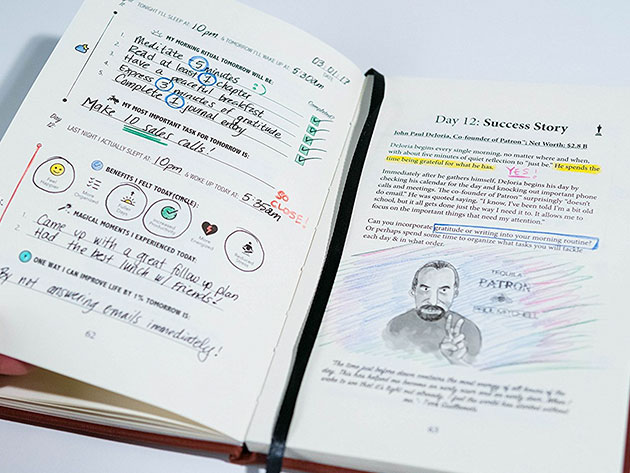 TONIGHT I'LL SLEEP AT: 10pm & TOMORROW I'LL WAKE UP AT: 5:30am
03.01.17
MY MORNING RITUAL TOMORROW WILL BE:
Completed?
1. Meditate 5 minutes :)
2. Read at least 1 chapter
3. Have a peaceful breakfast
4. Express 3 minutes of gratitude
5. Complete 1 journal entry
MY MOST IMPORTANT TASK FOR TOMORROW IS:
Make 10 sales calls!
Day
12
LAST NIGHT I ACTUALLY SLEPT AT: 10pm & WOKE UP TODAY AT: 5:35am
SO CLOSE!
BENEFITS I FELT TODAY (CIRCLE):
Organized
More Energized
MAGICAL MOMENTS I EXPERIENCED TODAY:
1. Came up with a great follow up plan
2. Had the best lunch w/ Friends!
ONE WAY I CAN IMPROVE LIFE BY 1% TOMORROW IS:
By not answering emails immediately!
62
Day 12: Success Story
John Paul DeJoria, Co-founder of Patron™; Net Worth: $2.8 B
DeJoria begins every single morning, no matter where and when,
with about five minutes of quiet reflection to "just be." He spends the
time being grateful for what he has.
YES!
Immediately after he gathers himself, DeJoria begins his day by
checking his calendar for the day and knocking out important phone
calls and meetings. The co-founder of Patron™ surprisingly "doesn't
do email." He was quoted saying, "I know, I've been told I'm a bit old
school, but it all gets done just the way I need it to. It allows me to
focus on the important things that need my attention."
Can you incorporate gratitude or writing into your morning routine?
Or perhaps spend some time to organize what tasks you will tackle
each day & in what order.
TEQUILA
PATRON
PAUL MITCHELL
The time just before dawn contains the most energy of all hours of the
day. This has helped me become an early riser and an early doer. When I
wake to see that it's light out already, I feel the world has started without
me. - Terri Guillemets
63